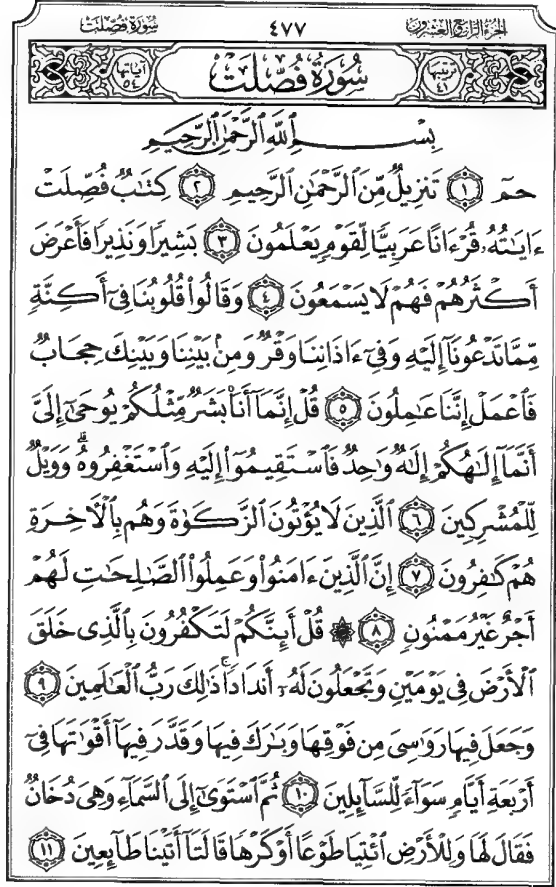 سُورَةُ فُصِّلَت ٤٧٧ الجُزءُ الرَّابعُ وَالعِشرُون
ترتيبها ٤١ سُورَةُ فُصِّلَتْ آياتها ٥٤
بِسْمِ ٱللَّهِ ٱلرَّحْمَٰنِ ٱلرَّحِيمِ
حمٓ ١ تَنزِيلٌ مِّنَ ٱلرَّحْمَٰنِ ٱلرَّحِيمِ ٢ كِتَٰبٌ فُصِّلَتْ
ءَايَٰتُهُۥ قُرْءَانًا عَرَبِيًّا لِّقَوْمٍ يَعْلَمُونَ ٣ بَشِيرًا وَنَذِيرًا فَأَعْرَضَ
أَكْثَرُهُمْ فَهُمْ لَا يَسْمَعُونَ ٤ وَقَالُوا۟ قُلُوبُنَا فِىٓ أَكِنَّةٍ
مِّمَّا تَدْعُونَآ إِلَيْهِ وَفِىٓ ءَاذَانِنَا وَقْرٌ وَمِنۢ بَيْنِنَا وَبَيْنِكَ حِجَابٌ
فَٱعْمَلْ إِنَّنَا عَٰمِلُونَ ٥ قُلْ إِنَّمَآ أَنَا۠ بَشَرٌ مِّثْلُكُمْ يُوحَىٰٓ إِلَىَّ
أَنَّمَآ إِلَٰهُكُمْ إِلَٰهٌ وَٰحِدٌ فَٱسْتَقِيمُوٓا۟ إِلَيْهِ وَٱسْتَغْفِرُوهُ ۗ وَوَيْلٌ
لِّلْمُشْرِكِينَ ٦ ٱلَّذِينَ لَا يُؤْتُونَ ٱلزَّكَوٰةَ وَهُم بِٱلْءَاخِرَةِ
هُمْ كَٰفِرُونَ ٧ إِنَّ ٱلَّذِينَ ءَامَنُوا۟ وَعَمِلُوا۟ ٱلصَّٰلِحَٰتِ لَهُمْ
أَجْرٌ غَيْرُ مَمْنُونٍ ٨ ۞ قُلْ أَئِنَّكُمْ لَتَكْفُرُونَ بِٱلَّذِى خَلَقَ
ٱلْأَرْضَ فِى يَوْمَيْنِ وَتَجْعَلُونَ لَهُۥٓ أَندَادًا ۚ ذَٰلِكَ رَبُّ ٱلْعَٰلَمِينَ ٩
وَجَعَلَ فِيهَا رَوَٰسِىَ مِن فَوْقِهَا وَبَٰرَكَ فِيهَا وَقَدَّرَ فِيهَآ أَقْوَٰتَهَا فِىٓ
أَرْبَعَةِ أَيَّامٍ سَوَآءً لِّلسَّآئِلِينَ ١٠ ثُمَّ ٱسْتَوَىٰٓ إِلَى ٱلسَّمَآءِ وَهِىَ دُخَانٌ
فَقَالَ لَهَا وَلِلْأَرْضِ ٱئْتِيَا طَوْعًا أَوْ كَرْهًا قَالَتَآ أَتَيْنَا طَآئِعِينَ ١١